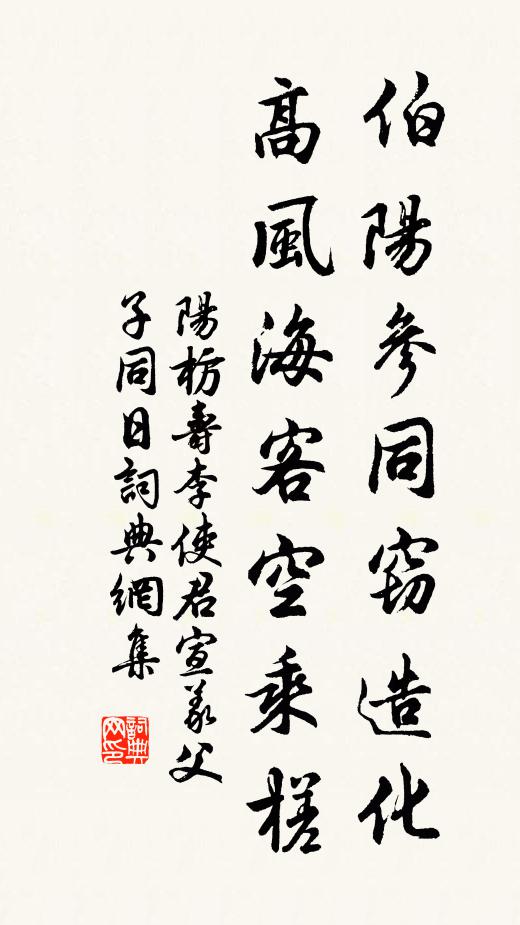 伯陽參同窃造化
高風海客空乘槎
陽枋壽李使君宣義父
子同日詞典網集
詞典
网印